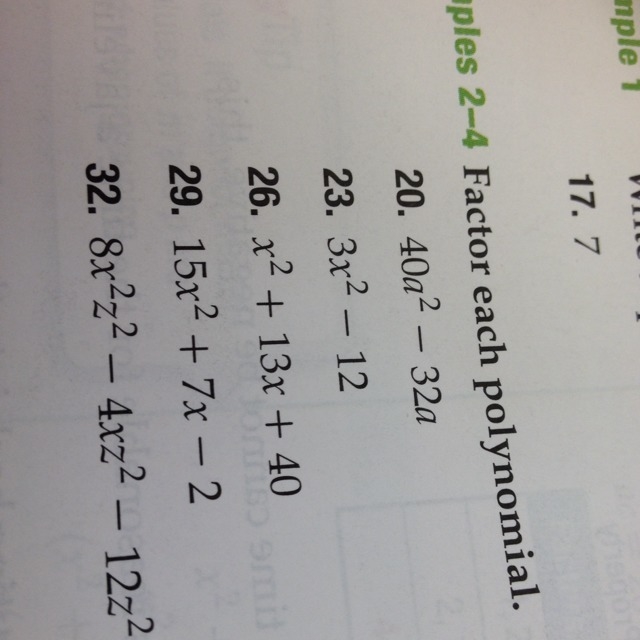 17. 7
Factor each polynomial.
20. 40a² − 32a
23. 3x² − 12
26. x² + 13x + 40
29. 15x² + 7x − 2
32. 8x²z² − 4xz² − 12z²